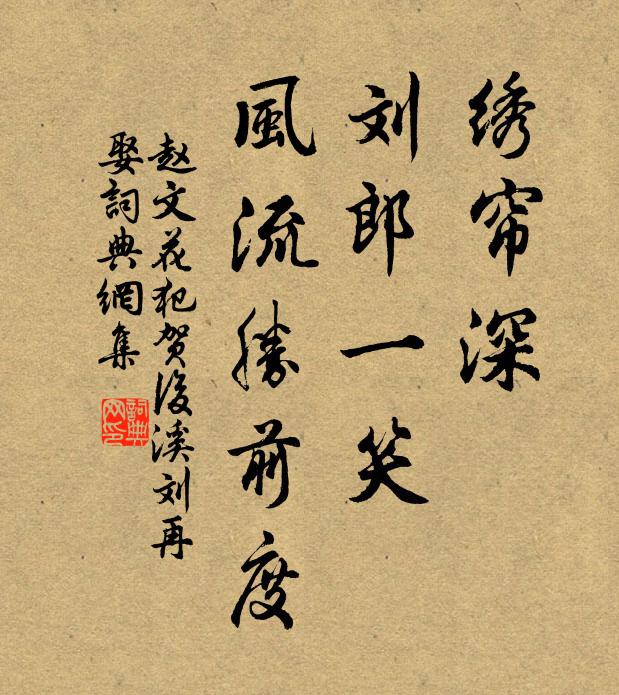 绣帘深
刘郎一笑
風流勝前度
赵文花犯贺後溪刘再
娶詞典網集
詞典网印